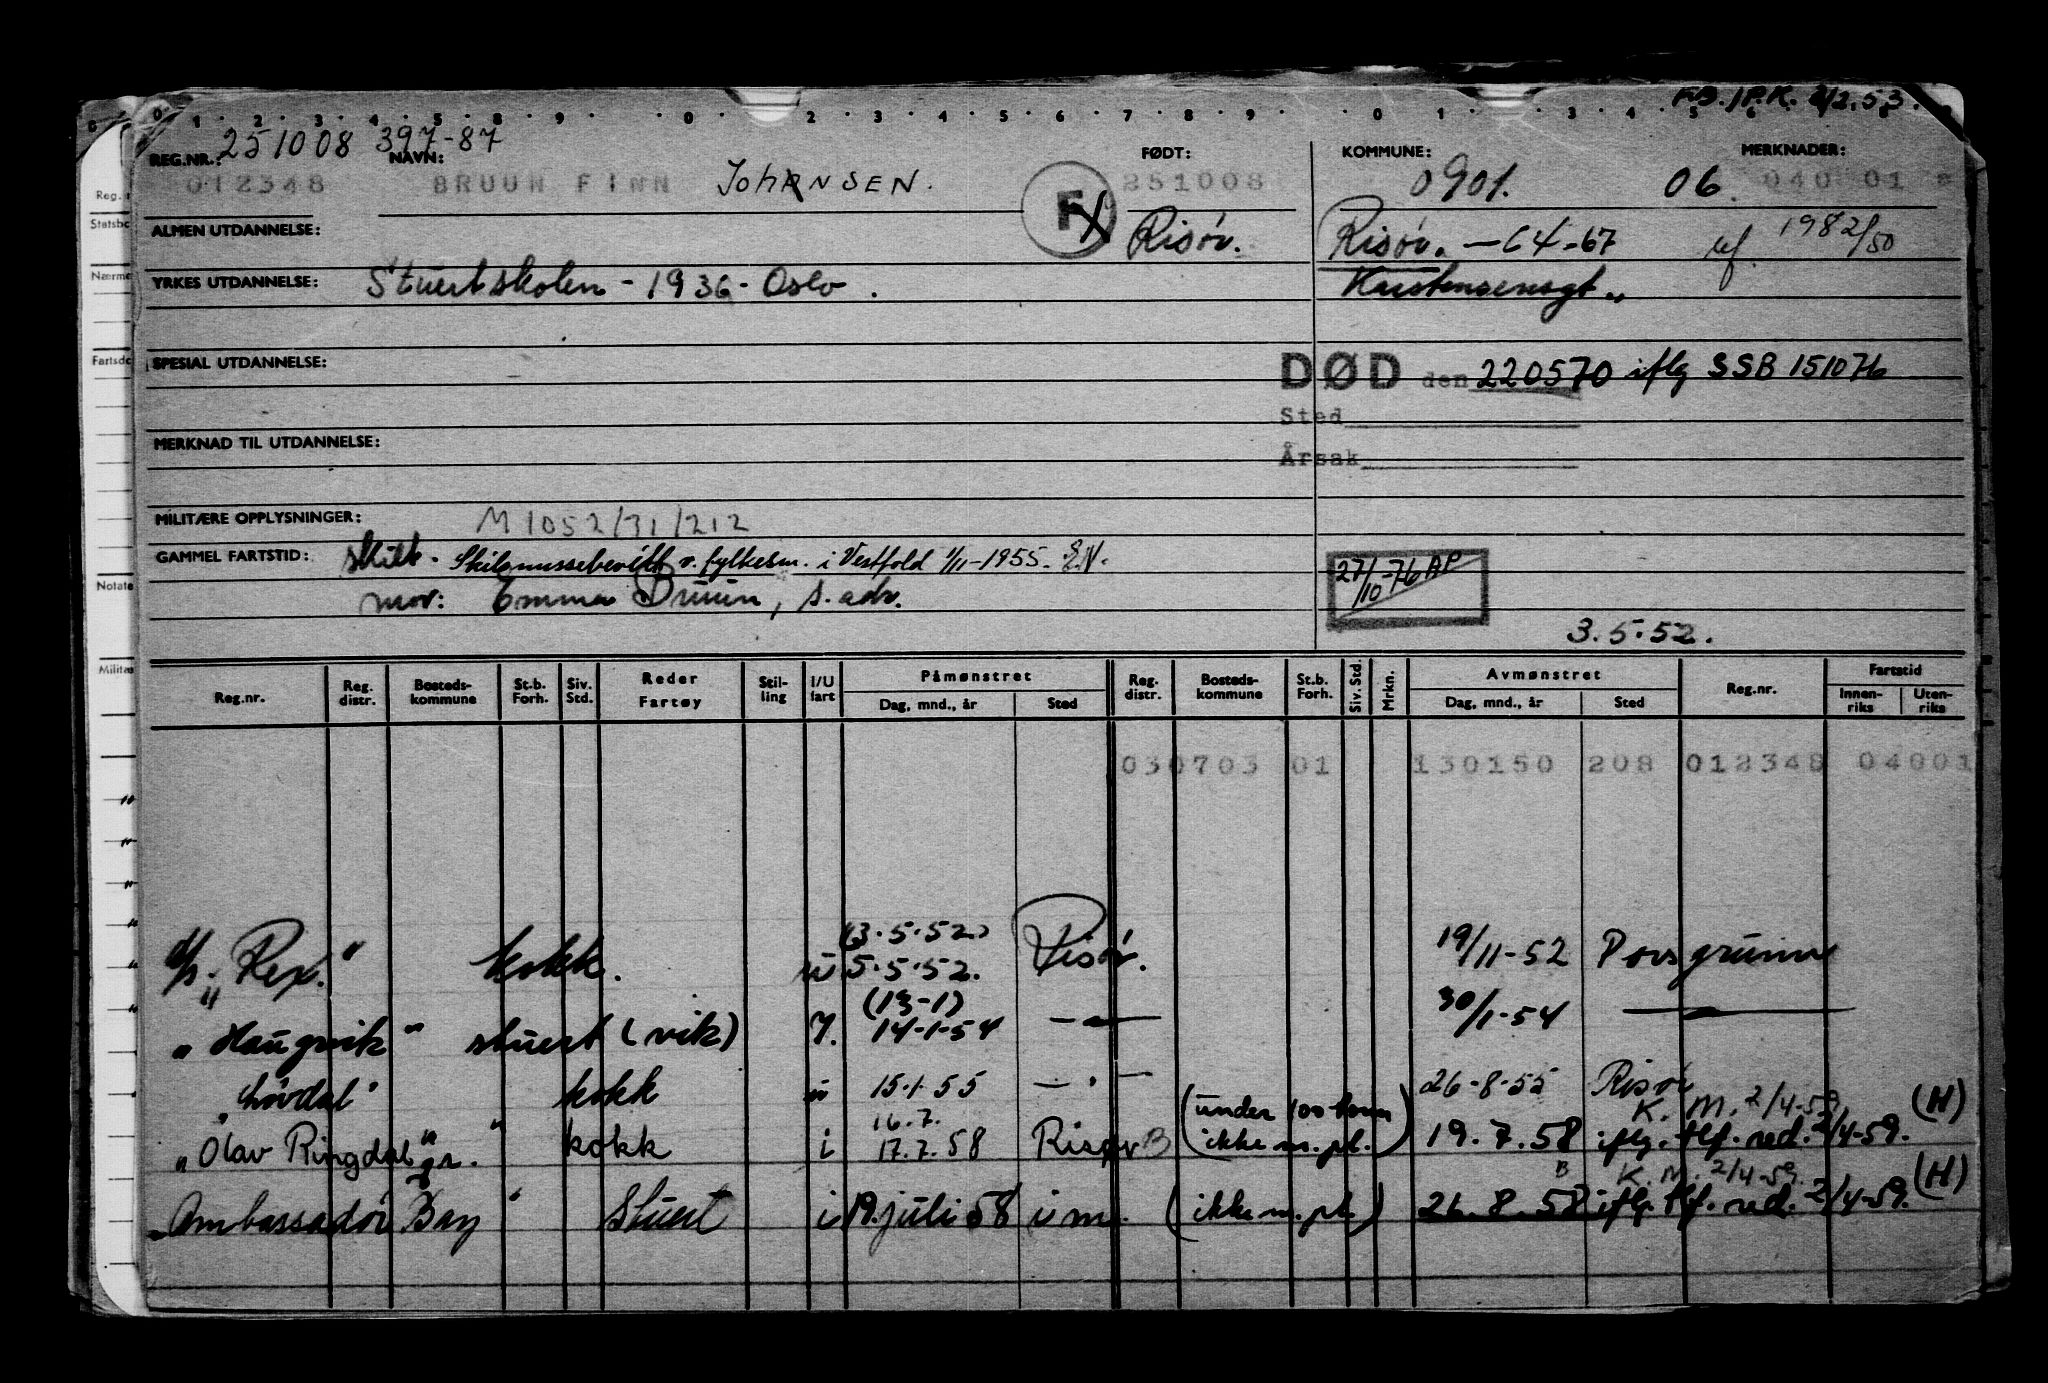 FD. /P.K. 2/2.53.
251008 397-87
REG.NR.: NAVN: FØDT: KOMMUNE: MERKNADER:
012348 BRUUN FINN JOHANSEN. F 251008 0901. 06. 040 01
ALMEN UTDANNELSE: Risör. Risör. - 64-67 uf. 1982/50
YRKES UTDANNELSE: Stuertskolen - 1936 - Oslo. Kristensensgt.
SPESIAL UTDANNELSE:
DØD den 220570 iflg SSB 151076
Sted
Årsak
MERKNAD TIL UTDANNELSE:
MILITÆRE OPPLYSNINGER: M 1052/31/212
GAMMEL FARTSTID: skilt. Skilsmissebevill v. fylkesm. i Vestfold 1/11-1955.
27/10-76 AP
mor: Emma Bruun, s. adr.
3.5.52.
Reg.nr. Reg. distr. Bosteds-kommune St.b. Forh. Siv. Std. Reder Fartøy Stil-ling I/U fart Påmønstret Dag, mnd., år Sted Reg. distr. Bosteds-kommune St.b. Forh. Siv. Std. Mrkn. Avmønstret Dag, mnd., år Sted Reg.nr. Fartstid Innen-riks Uten-riks
030703 01 130150 208 012348 04001
(3.5.52)
"Rex." kokk. u 5.5.52. Risör. 19/11-52 Porsgrunn
(13-1)
" Haugvik" stuert (vik) I. 14-1-54 — 30/1-54 —
"Lövdal" kokk u 15.1.55 — 26-8-55 Risör
16.7. (under 100 tonn K. M. 2/4-59 (H)
"Olav Ringdal jr." kokk i 17.7.58 Risör B ikke m.pl.) 19.7.58 iflg. tlf. red. 2/4-59.
B K. M. 2/4-59. (H)
"Ambassador Bay" Stuert i 19. juli 58 um. (ikke m.pl.) 26.8.58 iflg. tlf. red. 2/4-59.